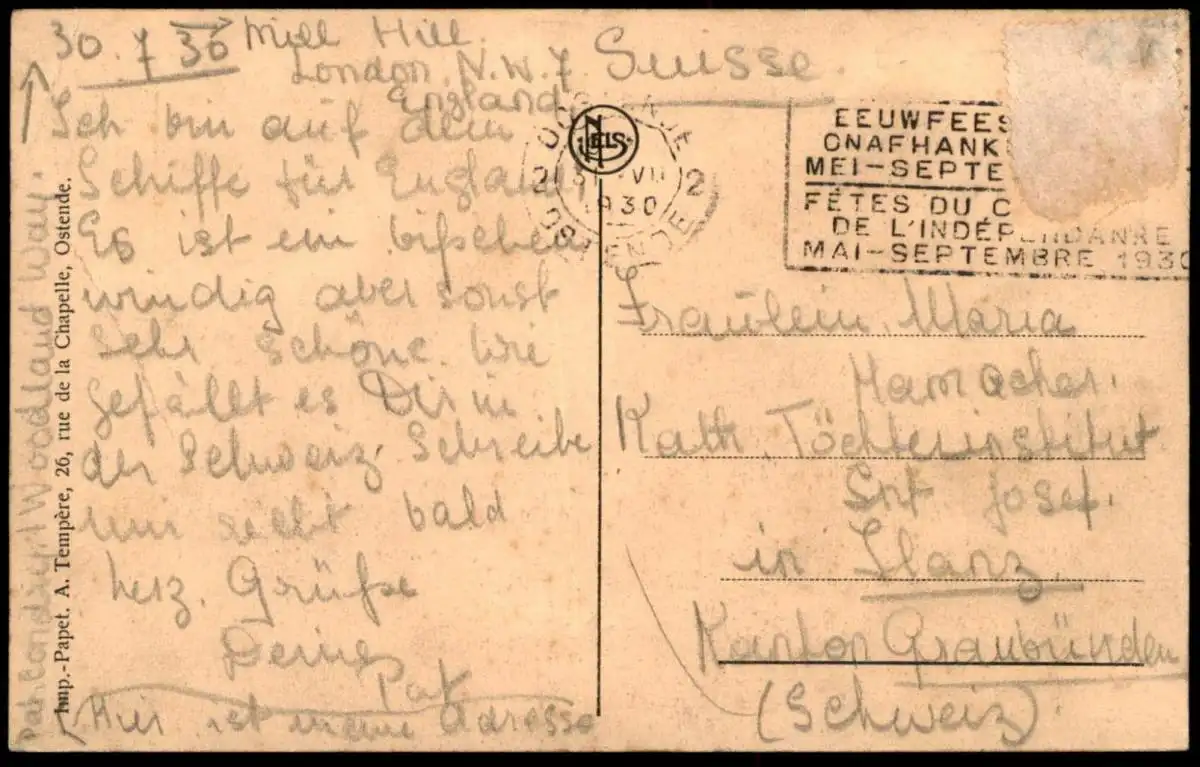 30. 7 30 Mill Hill.
London. N.W. 7
England
Ich bin auf dem
Schiffe für England
Es ist ein bißchen
windig aber sonst
sehr schöne. Wie
gefällt es Dir in
der Schweiz. Schreibe
mir recht bald
herz. Grüße
Deine
Pat
(Hier ist meine Adresse
Woodland Way.
Imp.-Papet. A. Tempère, 26, rue de la Chapelle, Ostende.
NELS
1930
EEUWFEES
ONAFHANK
MEI-SEPTE
FÊTES DU C
DE L'INDÉPENDANRE
MAI-SEPTEMBRE 1930
Suisse.
Fräulein Maria
Hamacher.
Kath. Töchterinstitut
Snt Josef.
in Ilanz.
Kanton Graubünden
(Schweiz).